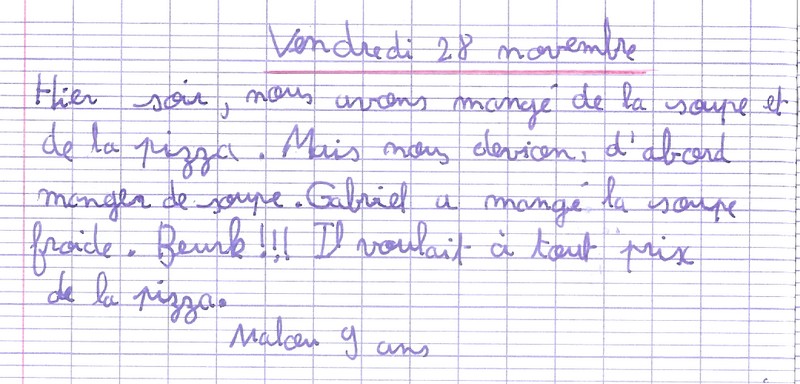 Vendredi 28 novembre
Hier soir, nous avons mangé de la soupe et
de la pizza. Mais nous devions, d'abord
manger de soupe. Gabriel a mangé la soupe
froide. Beurk!!! Il voulait à tout prix
de la pizza.
9 ans